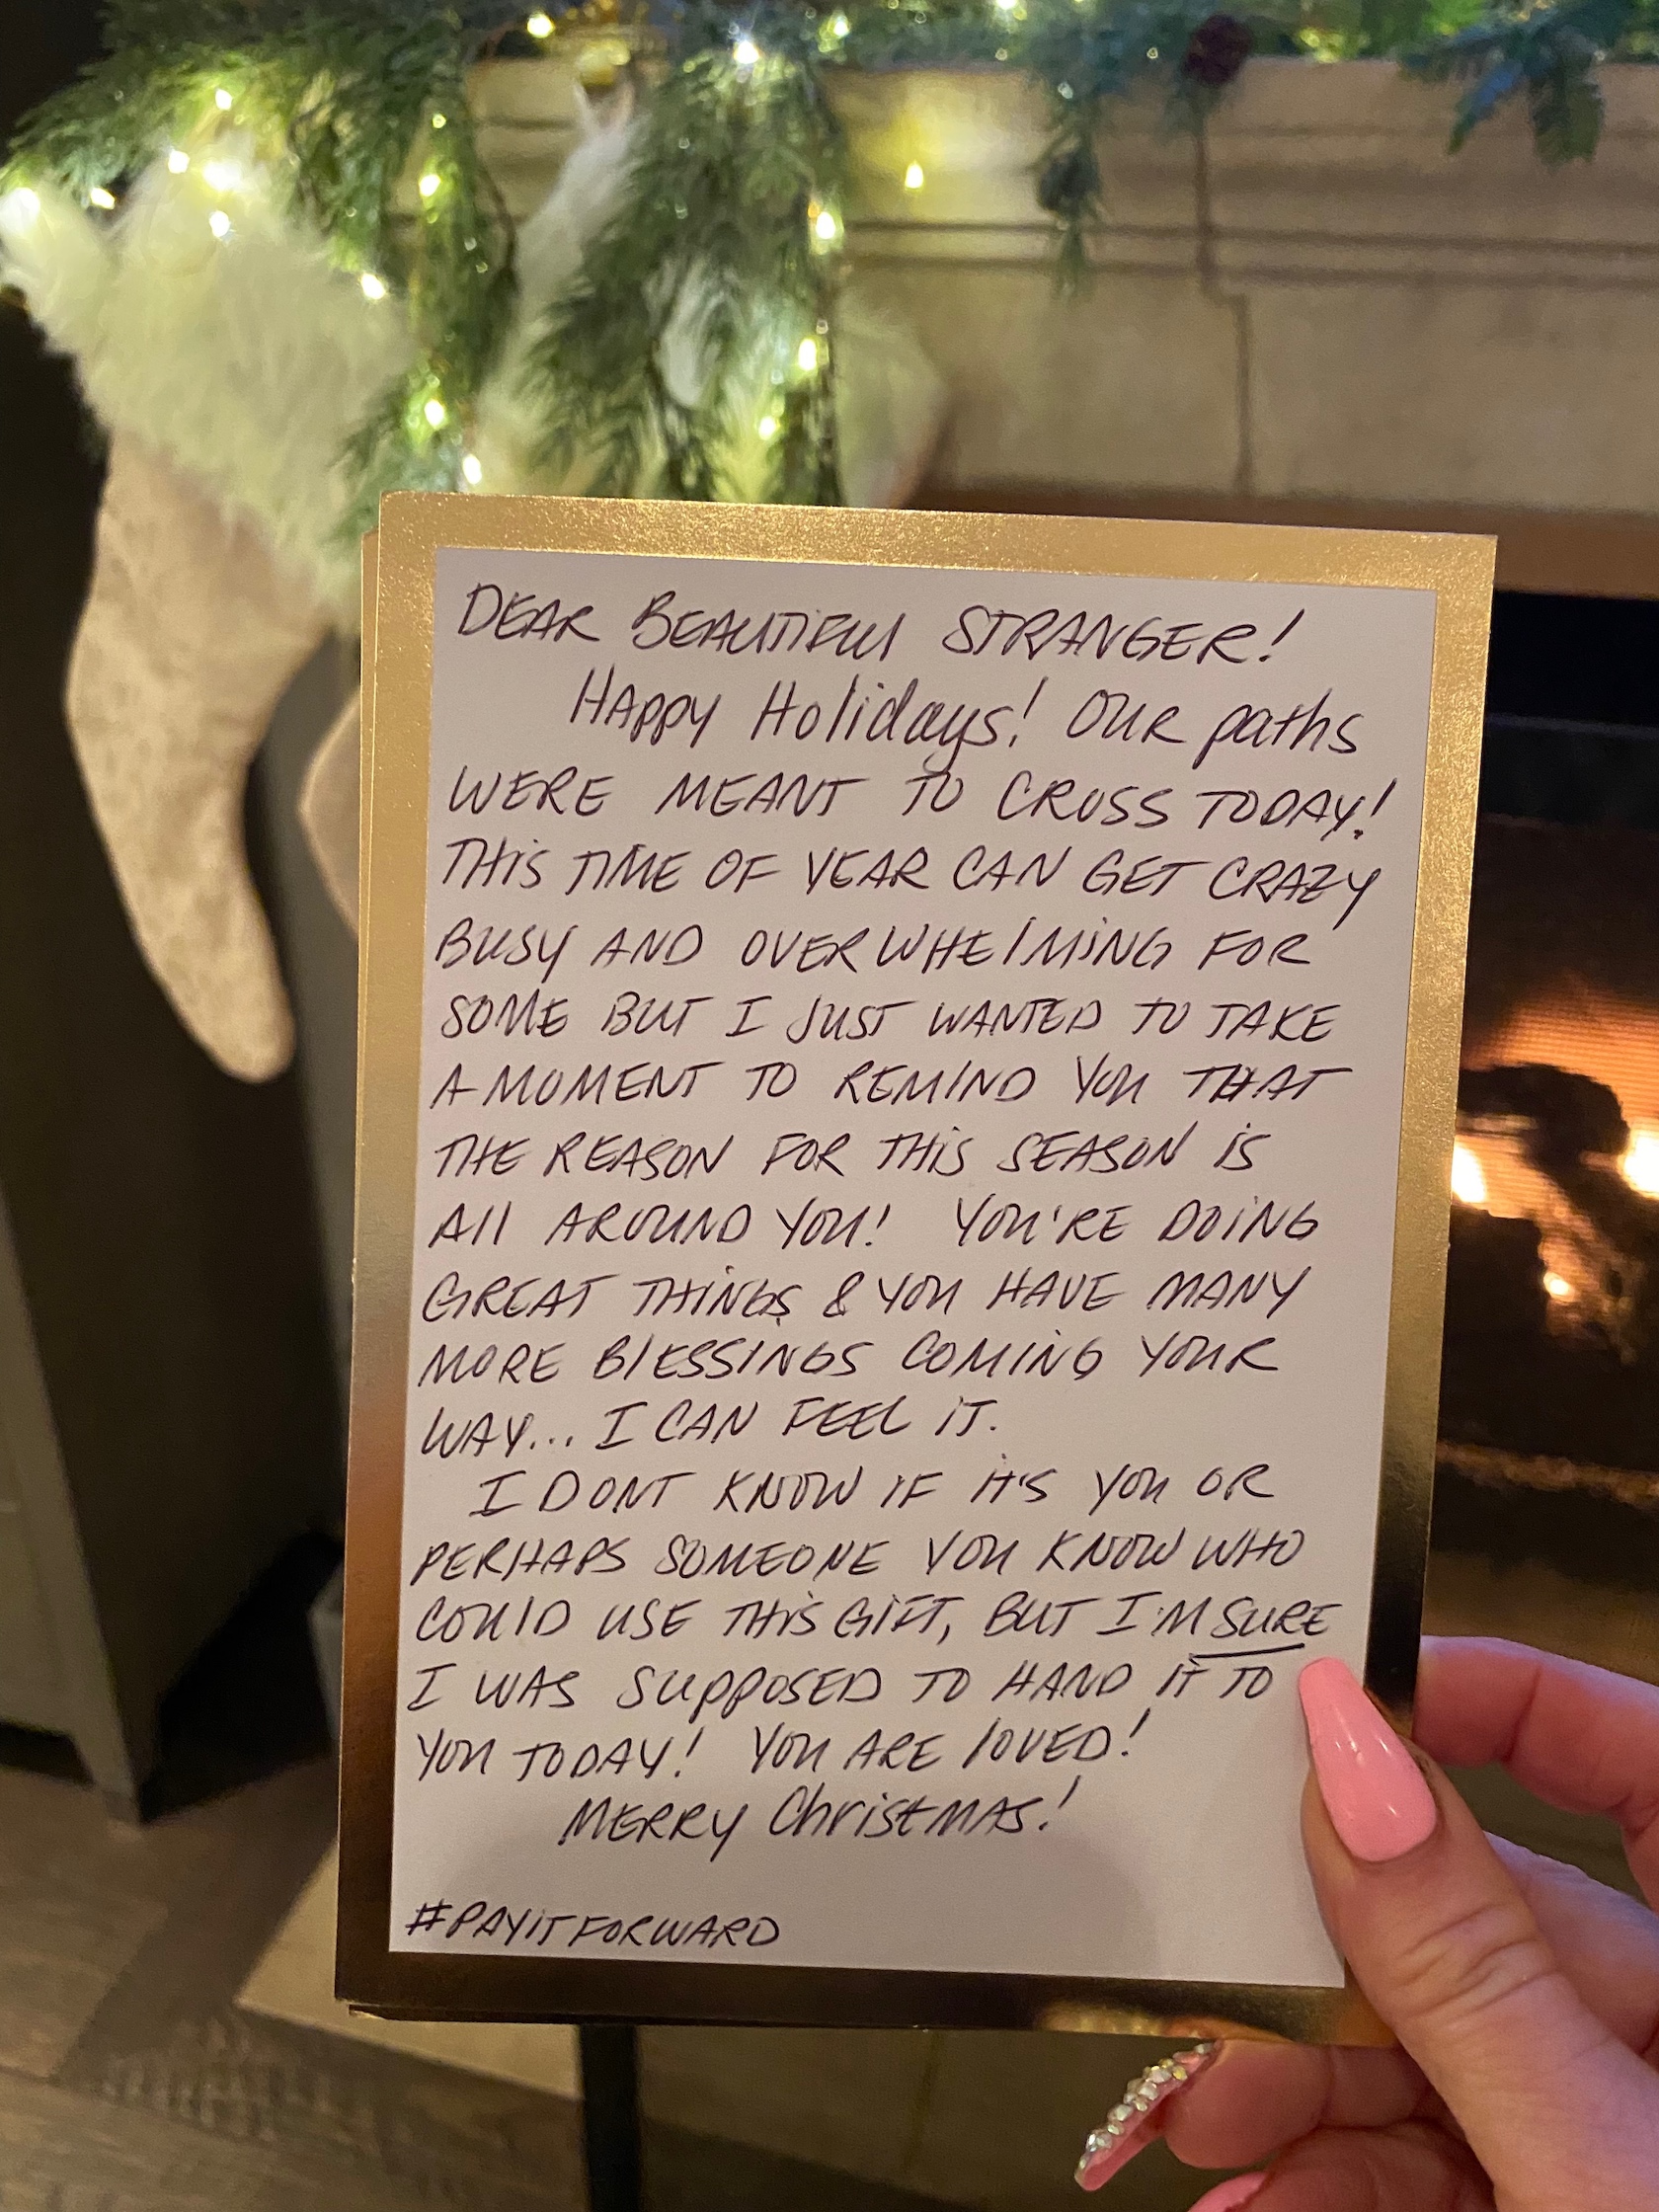 DEAR BEAUTIFUL STRANGER!
HAPPY Holidays! OUR paths
WERE MEANT TO CROSS TODAY!
THIS TIME OF YEAR CAN GET CRAZY
BUSY AND OVERWHElMING FOR
SOME BUT I JUST WANTED TO TAKE
A MOMENT TO REMIND YOU THAT
THE REASON FOR THIS SEASON IS
All AROUND YOU! YOU'RE DOING
GREAT THINGS & YOU HAVE MANY
MORE BlESSINGS COMING YOUR
WAY... I CAN FEEL IT.
I DONT KNOW IF IT'S YOU OR
PERHAPS SOMEONE YOU KNOW WHO
COUlD USE THIS GIFT, BUT I'M SURE
I WAS SUPPOSED TO HAND IT TO
YOU TODAY! YOU ARE lOVED!
MERRY ChrisTMAS!
#PAYITFORWARD